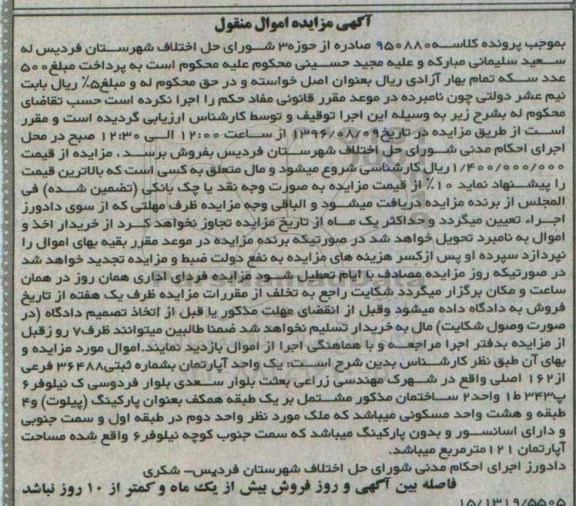 آگهی مزایده اموال منقول
بموجب پرونده کلاسه ۹۵۰۸۸۰ صادره از حوزه۳ شورای حل اختلاف شهرستان فردیس له
سعید سلیمانی مبارکه و علیه مجید حسینی محکوم علیه محکوم است به پرداخت مبلغ۵۰۰
عدد سکه تمام بهار آزادی ریال بعنوان اصل خواسته و در حق محکوم له و مبلغ۵٪ ریال بابت
نیم عشر دولتی چون نامبرده در موعد مقرر قانونی مفاد حکم را اجرا نکرده است حسب تقاضای
محکوم له بشرح زیر به وسیله این اجرا توقیف و توسط کارشناس ارزیابی گردیده است و مقرر
است از طریق مزایده در تاریخ۱۳۹۶/۰۸/۰۹ از ساعت ۱۲:۰۰ الی ۱۲:۳۰ صبح در محل
اجرای احکام مدنی شورای حل اختلاف شهرستان فردیس بفروش برسد، مزایده از قیمت
۱/۴۰۰/۰۰۰/۰۰۰ریال کارشناسی شروع میشود و مال متعلق به کسی است که بالاترین قیمت
را پیشنهاد نماید ۱۰٪ از قیمت مزایده به صورت وجه نقد یا چک بانکی (تضمین شده) فی
المجلس از برنده مزایده دریافت میشود و الباقی وجه مزایده ظرف مهلتی که از سوی دادورز
اجراء تعیین میگردد و حداکثر یک ماه از تاریخ مزایده تجاوز نخواهد کرد از خریدار اخذ و
اموال به نامبرد تحویل خواهد شد در صورتیکه برنده مزایده در موعد مقرر بقیه بهای اموال را
نپردازد سپرده او پس ازکسر هزینه های مزایده به نفع دولت ضبط و مزایده تجدید خواهد شد
در صورتیکه روز مزایده مصادف با ایام تعطیل شود مزایده فردای اداری همان روز در همان
ساعت و مکان برگزار میگردد شکایت راجع به تخلف از مقررات مزایده ظرف یک هفته از تاریخ
فروش به دادگاه داده میشود وقبل از انقضای مهلت مذکور یا قبل از اتخاذ تصمیم دادگاه (در
صورت وصول شکایت) مال به خریدار تسلیم نخواهد شد ضمنا طالبین میتوانند ظرف۷ رو زقبل
از مزایده بدفتر اجرا مراجعه و با هماهنگی اجرا از اموال بازدید نمایند.اموال مورد مزایده و
بهای آن طبق نظر کارشناس بدین شرح است: یک واحد آپارتمان بشماره ثبتی۳۶۴۸۸ فرعی
از۱۶۲ اصلی واقع در شهرک مهندسی زراعی بعثت بلوار سعدی بلوار فردوسی ک نیلوفر۶
پ۳۴۳ ط۱ واحد۲ ساختمان مذکور مشتمل بر یک طبقه همکف بعنوان پارکینگ (پیلوت) و۴
طبقه و هشت واحد مسکونی میباشد که ملک مورد نظر واحد دوم در طبقه اول و سمت جنوبی
و دارای اسانسور و بدون پارکینگ میباشد که سمت جنوب کوچه نیلوفر۶ واقع شده مساحت
آپارتمان ۱۲۱مترمربع میباشد.
دادورز اجرای احکام مدنی شورای حل اختلاف شهرستان فردیس– شکری
فاصله بین آگهی و روز فروش بیش از یک ماه و کمتر از ۱۰ روز نباشد
۱۵/۱۳۱۹/۵۵۰۵